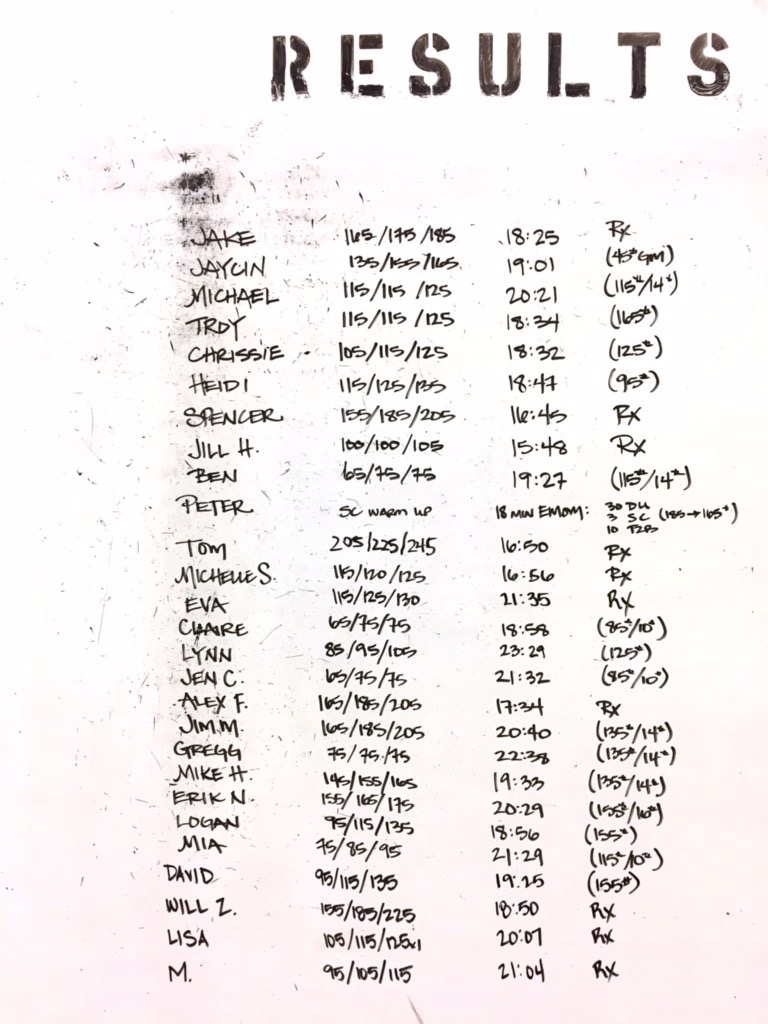 RESULTS
JAKE 165/175/185 18:25 Rx
JAYCIN 135/155/165 19:01 (45# GM)
MICHAEL 115/115/125 20:21 (115#/14#)
TROY 115/115/125 18:34 (165#)
CHRISSIE 105/115/125 18:32 (125#)
HEIDI 115/125/135 18:47 (95#)
SPENCER 155/185/205 16:45 Rx
JILL H. 100/100/105 15:48 Rx
BEN 65/75/75 19:27 (115#/14#)
PETER SC WARM UP 18 MIN EMOM: 30 DU
3 SC (185→165#)
10 T2B
TOM 205/225/245 16:50 Rx
MICHELLE S. 115/120/125 16:56 Rx
EVA 115/125/130 21:35 Rx
CLAIRE 65/75/75 18:58 (85#/10#)
LYNN 85/95/105 23:29 (125#)
JEN C. 65/75/75 21:32 (85#/10#)
ALEX F. 165/185/205 17:34 Rx
JIM M. 165/185/205 20:40 (135#/14#)
GREGG 75/75/75 22:38 (135#/14#)
MIKE H. 145/155/165 19:33 (135#/14#)
ERIK N. 155/165/175 20:29 (155#/16#)
LOGAN 95/115/135 18:56 (155#)
MIA 75/85/95 21:29 (115#/10#)
DAVID 95/115/135 19:25 (155#)
WILL Z. 155/185/225 18:50 Rx
LISA 105/115/125x1 20:07 Rx
M. 95/105/115 21:04 Rx